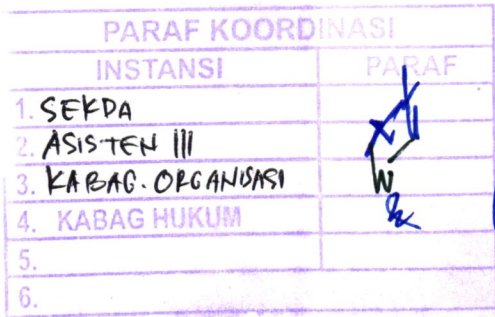 PARAF KOORDINASI
INSTANSI PARAF
1. SEKDA
2. ASISTEN III
3. KABAG. ORGANISASI
4. KABAG HUKUM
5.
6.